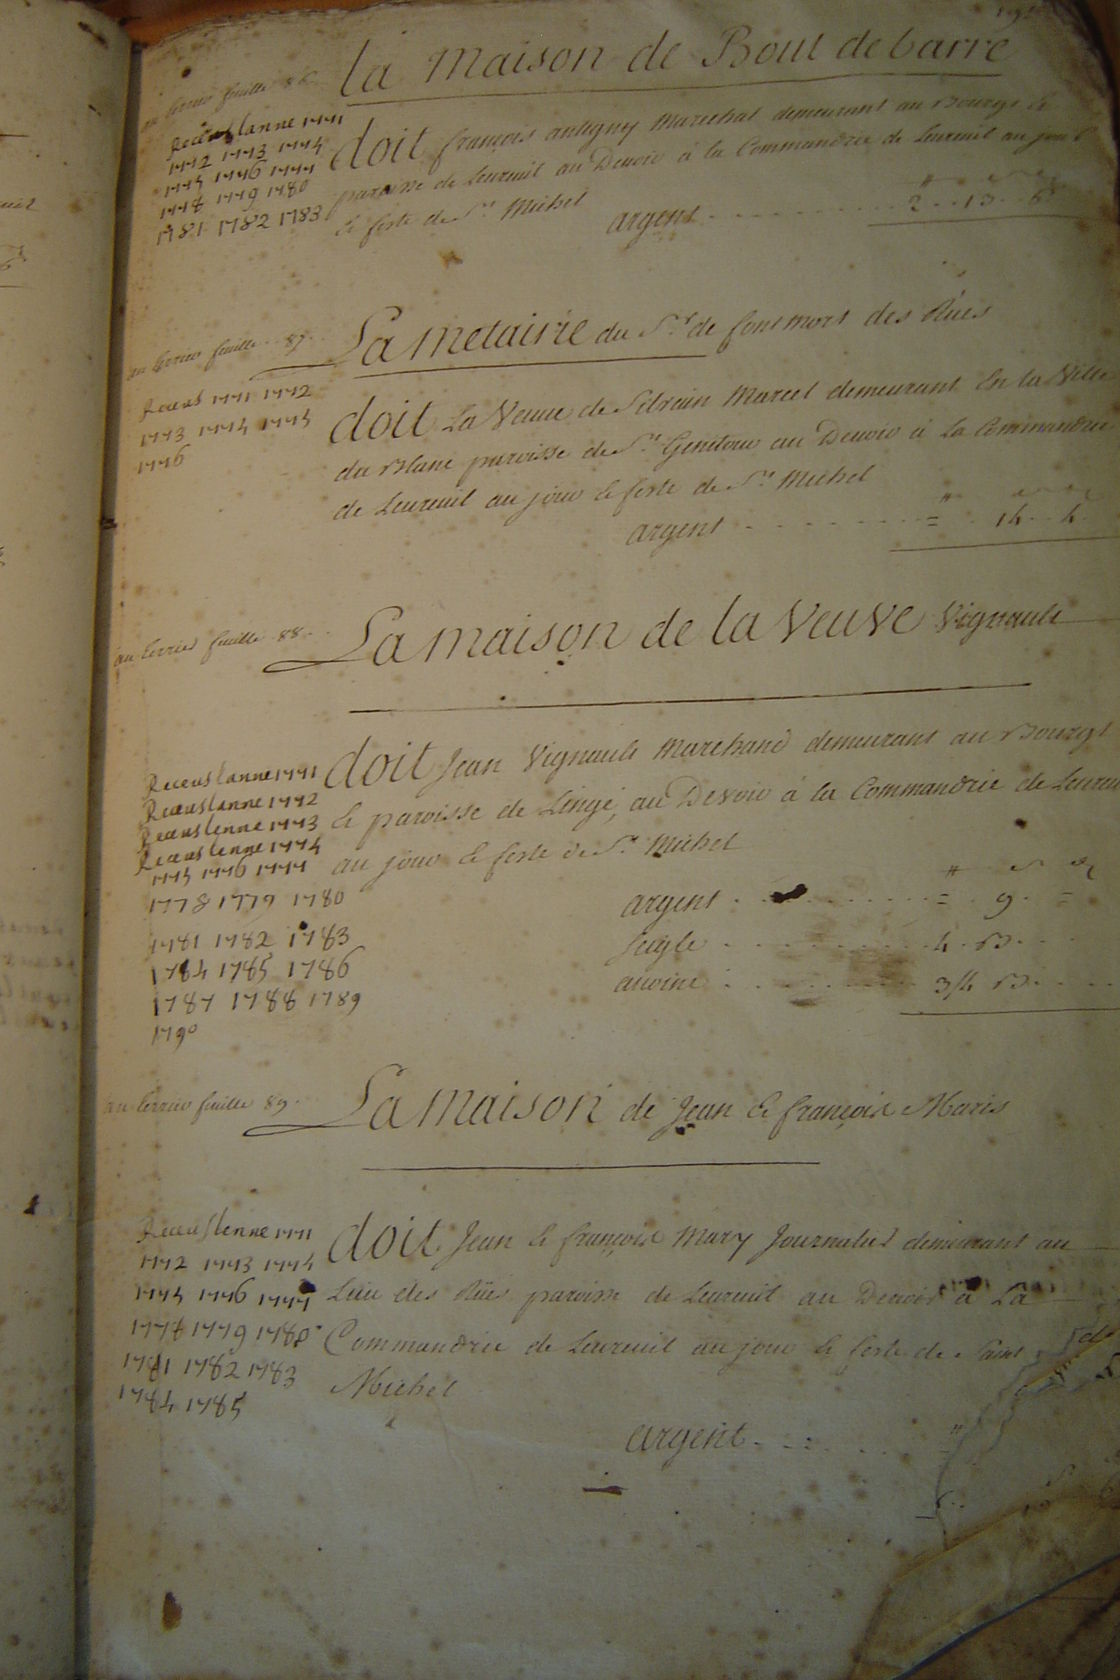 la maison de Bout de barre
au terrier feuille 86
Receus lanne 1771
1772 1773 1774
1775 1776 1777
1778 1779 1780
1781 1782 1783
doit françois antigny marechal demeurant au Bourgt &
paroisse de Leureuil au Devoir à la Commandrie de Leureuil au jour &
& feste de St. Michel
argent 2 .. 13 .. 6
au terrier feuille 87
La metairie du Sr. de font mort des Rües
Receus 1771 1772
1773 1774 1775
1776
doit La Veuve de Silvain Marcel demeurant En la Ville
du Blanc paroisse de St. Genitour au Devoir à La Commandrie
de Leureuil au jour & feste de St. Michel
argent = 14 .. 4
au terrier feuille 88
La maison de la Veuve Vignault
Receus lanne 1771
Receus lanne 1772
Receus lenne 1773
Receus lenne 1774
1775 1776 1777
1778 1779 1780
1781 1782 1783
1784 1785 1786
1787 1788 1789
1790
doit Jean Vignault Marchand demeurant au Bourgt
& paroisse de Lingé, au Devoir à la Commandrie de Leureuil
au jour & feste de St. Michel
argent = 9 =
seigle 4 B
avoine 3/4 B
au terrier feuille 89
La maison de Jean & françois Maris
Receus lenne 1771
1772 1773 1774
1775 1776 1777
1778 1779 1780
1781 1782 1783
1784 1785
doit Jean & françois Mary Journalier demeurant au
Lieu des Rües paroisse de Leureuil au Devoir à La
Commandrie de Leureuil au jour & feste de Saint
Michel
argent